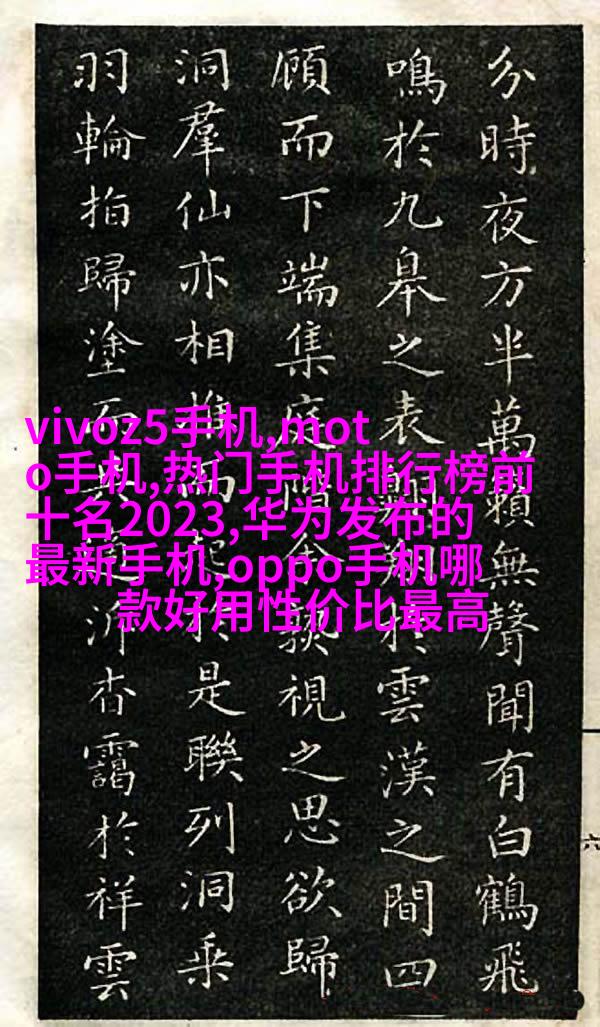 分時夜方半萬籟無聲聞有白鶴飛
鳴於九皋之表於雲漢之間四
顧而下端集庭隅余孰視之思欲歸
洞羣仙亦相推而起於是聯列洞乘
羽輪拍歸塗而泝杳靄於祥雲
vivoz5手机,mot
o手机,热门手机排行榜前
十名2023,华为发布的
最新手机,oppo手机哪
款好用性价比最高
六